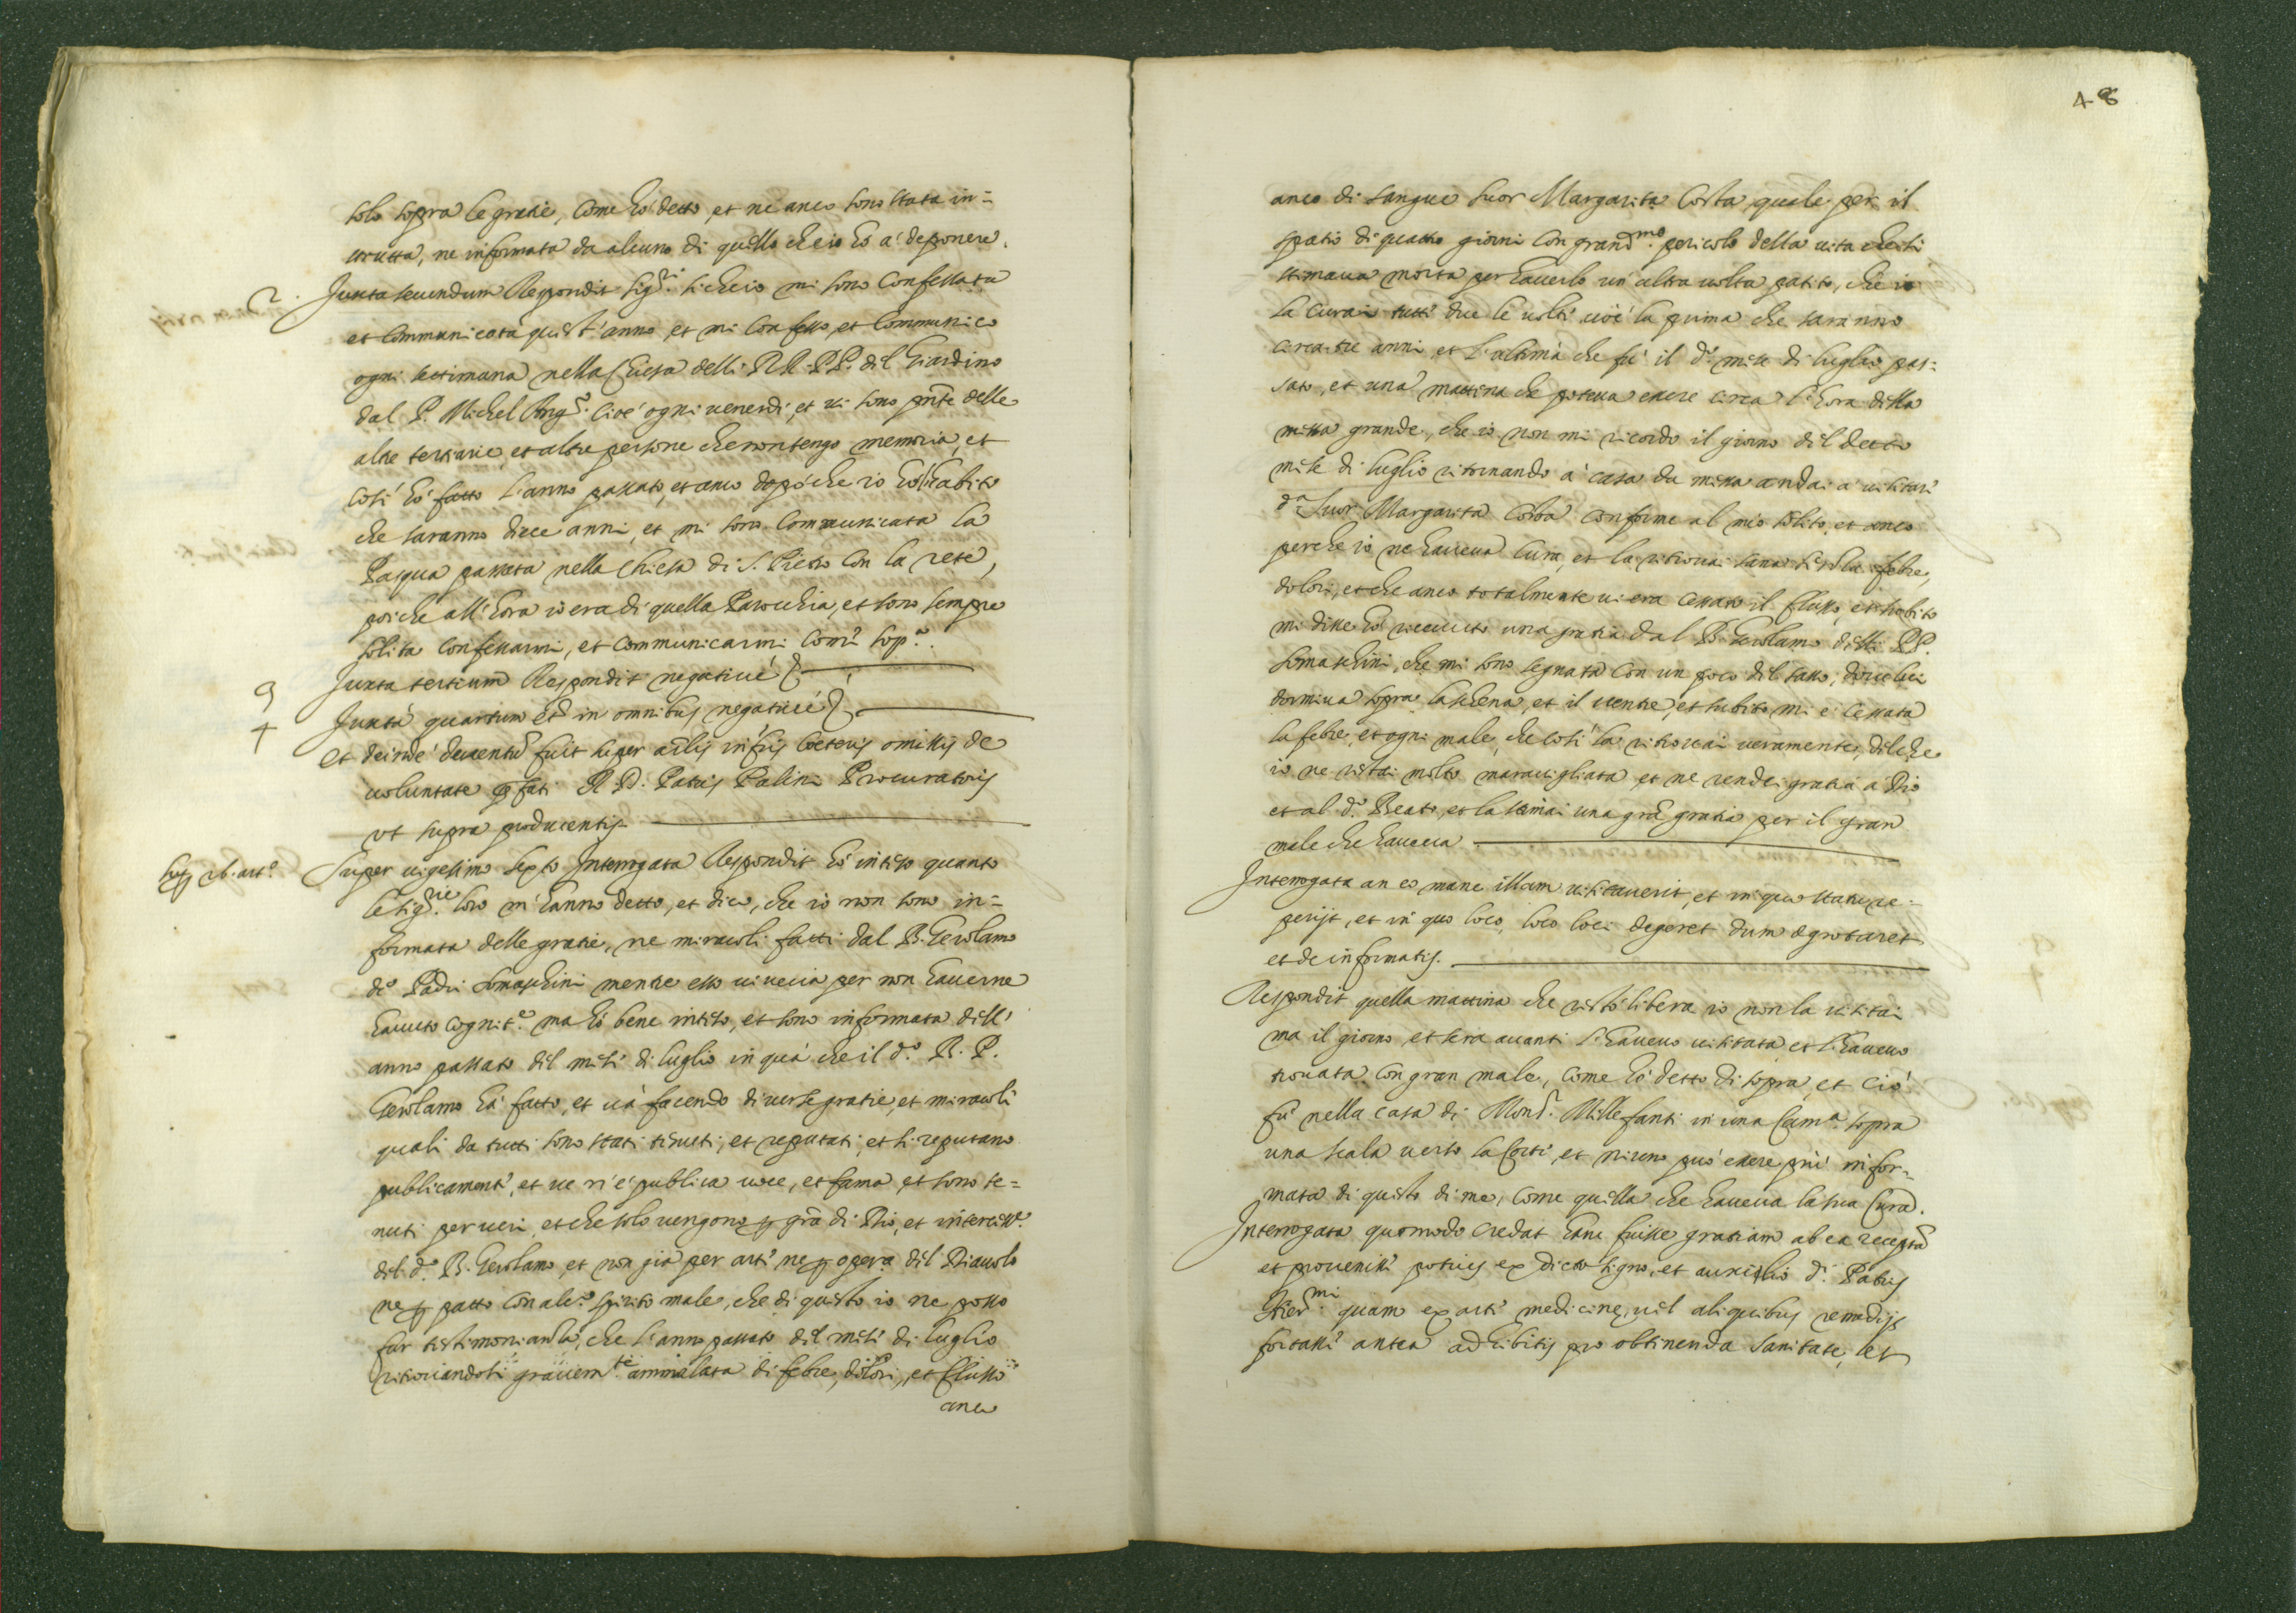 solo sopra le gratie, come hò detto, et ne anco sono stata in=
strutta, ne informata da alcuno di quello che io hò a' deponere.
2. Juxta secundum Respondit sig.ri si che io mi sono confessata
et communicata quest'anno, et mi confesso, et communico
ogni settimana nella Chiesa delli RR. PP. del Giardino
dal P. Michel Ang.o cioè ogni venerdì, et vi sono pnte delle
altre tertiarie, et altre persone che non tengo memoria, et
così hò fatto l'anno passato, et anco dopò che io hò l'habito
che saranno diece anni, et mi sono communicata la
Pasqua passata nella Chiesa di S. Pietro con la rete,
poi che all'hora io era di quella Parochia, et sono sempre
solita confessarmi, et communicarmi com' sop.a.
3 Juxta tertium Respondit negative
4 Juxta quartum et in omnibus negative
Et deinde deventu fuit super artlis infris coeteris omissis de
voluntate pfati R. P. Patris Palini Procuratoris
ut supra producentis
Sup. 26. art.o Super vigesimo sexto Interrogata Respondit hò inteso quanto
le sig.rie loro m'hanno detto, et dico, che io non sono in=
formata delle gratie, ne miracoli fatti dal B. Gerolamo
d.o Padri Somaschini mentre esso viveva per non haverne
havuto cognit.e ma hò bene inteso, et sono informata dell'
anno passato del mese di luglio in quà che il d.o B. P.
Gerolamo hà fatto, et và facendo diverse gratie, et miracoli
quali da tutti sono stati tenuti, et reputati, et si reputano
publicamente, et ve n'è publica voce, et fama, et sono te=
nuti per veri, et che solo vengono p grà di Dio, et intercess.e
del d.o B. Gerolamo, et non già per arte ne p opera del Diavolo
ne p patto con alc.o spirito male, che di questo io ne posso
far testimonianza, che l'anno passato del mese di luglio
ritrovandosi gravem.te ammalata di febre, dolori, et flusso
anco
48
anco di sangue Suor Margarita Costa, quale per il
spatio di quatro giorni con grand.mo pericolo della vita che si
stimava morta per haverlo un'altra volta patito, che io
la curai tutti due le volte cioè la prima che saranno
circa tre anni, et l'ultima che fù il d.o mese di luglio pas=
sato, et una mattina che poteva essere circa l'hora della
messa grande, che io non mi ricordo il giorno del detto
mese di luglio ritornando a' casa da messa andai a' visitare
d.a Suor Margarita Costa conforme al mio solito, et anco
perche io ne haveva cura, et la ritrovai sana di la febre,
dolori, et che anco totalmente vi era cessato il flusso, et subito
mi disse hò ricevuto una gratia dal B. Gerolamo delli PP.
Somaschini, che mi sono segnata con un poco del sasso, dove lui
dormiva sopra la schena, et il ventre, et subito mi è cessata
la febre, et ogni male, che così la ritrovai veramente, del che
io ne restai molto maravigliata et ne rendei gratia a' Dio
et al d.o Beato, et la stimai una grà gratia per il gran
male che haveva
Interrogata an eo mane illam visitaverit, et in quo statu re=
perijt, et in quo loco, loco loci degeret dum egrotaret
et de informatis.
Respondit quella mattina che restò libera io non la visitai
ma il giorno, et sera avanti l'havevo visitata et l'havevo
trovata con gran male, come hò detto di sopra, et ciò
fù nella casa di Mons.r Millefanti in una Cam.a sopra
una scala verso la Corte, et niuno può essere più infor=
mata di questo di me, come quella che haveva la sua Cura.
Interrogata quomodo credat hanc fuisse gratiam ab ea receptã
et provenisse potius ex dicto ligno, et auxilio d.i Patris
Hier.mi quam ex arte medicine, vel aliquibus remedijs
fortasse antea adhibitis pro obtinenda sanitate, et